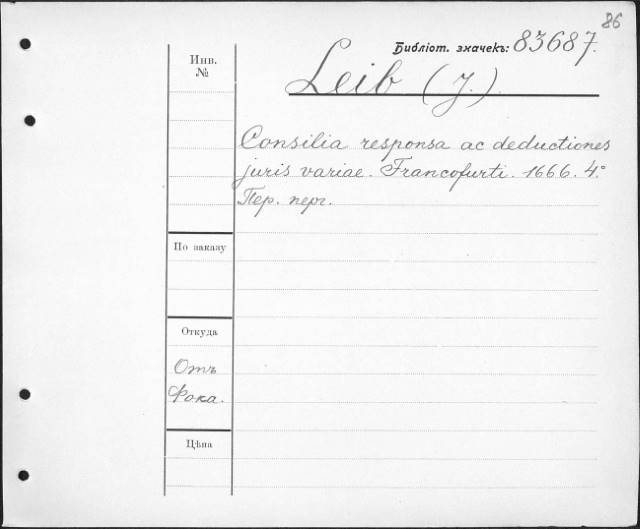 86
Библіот. значекъ: 83687.
Инв.
№
Leib (J.)
Consilia responsa ac deductiones
juris variae. Francofurti. 1666. 4°.
Пер. перг.
По заказу
Откуда
Отъ
Фока.
Цѣна